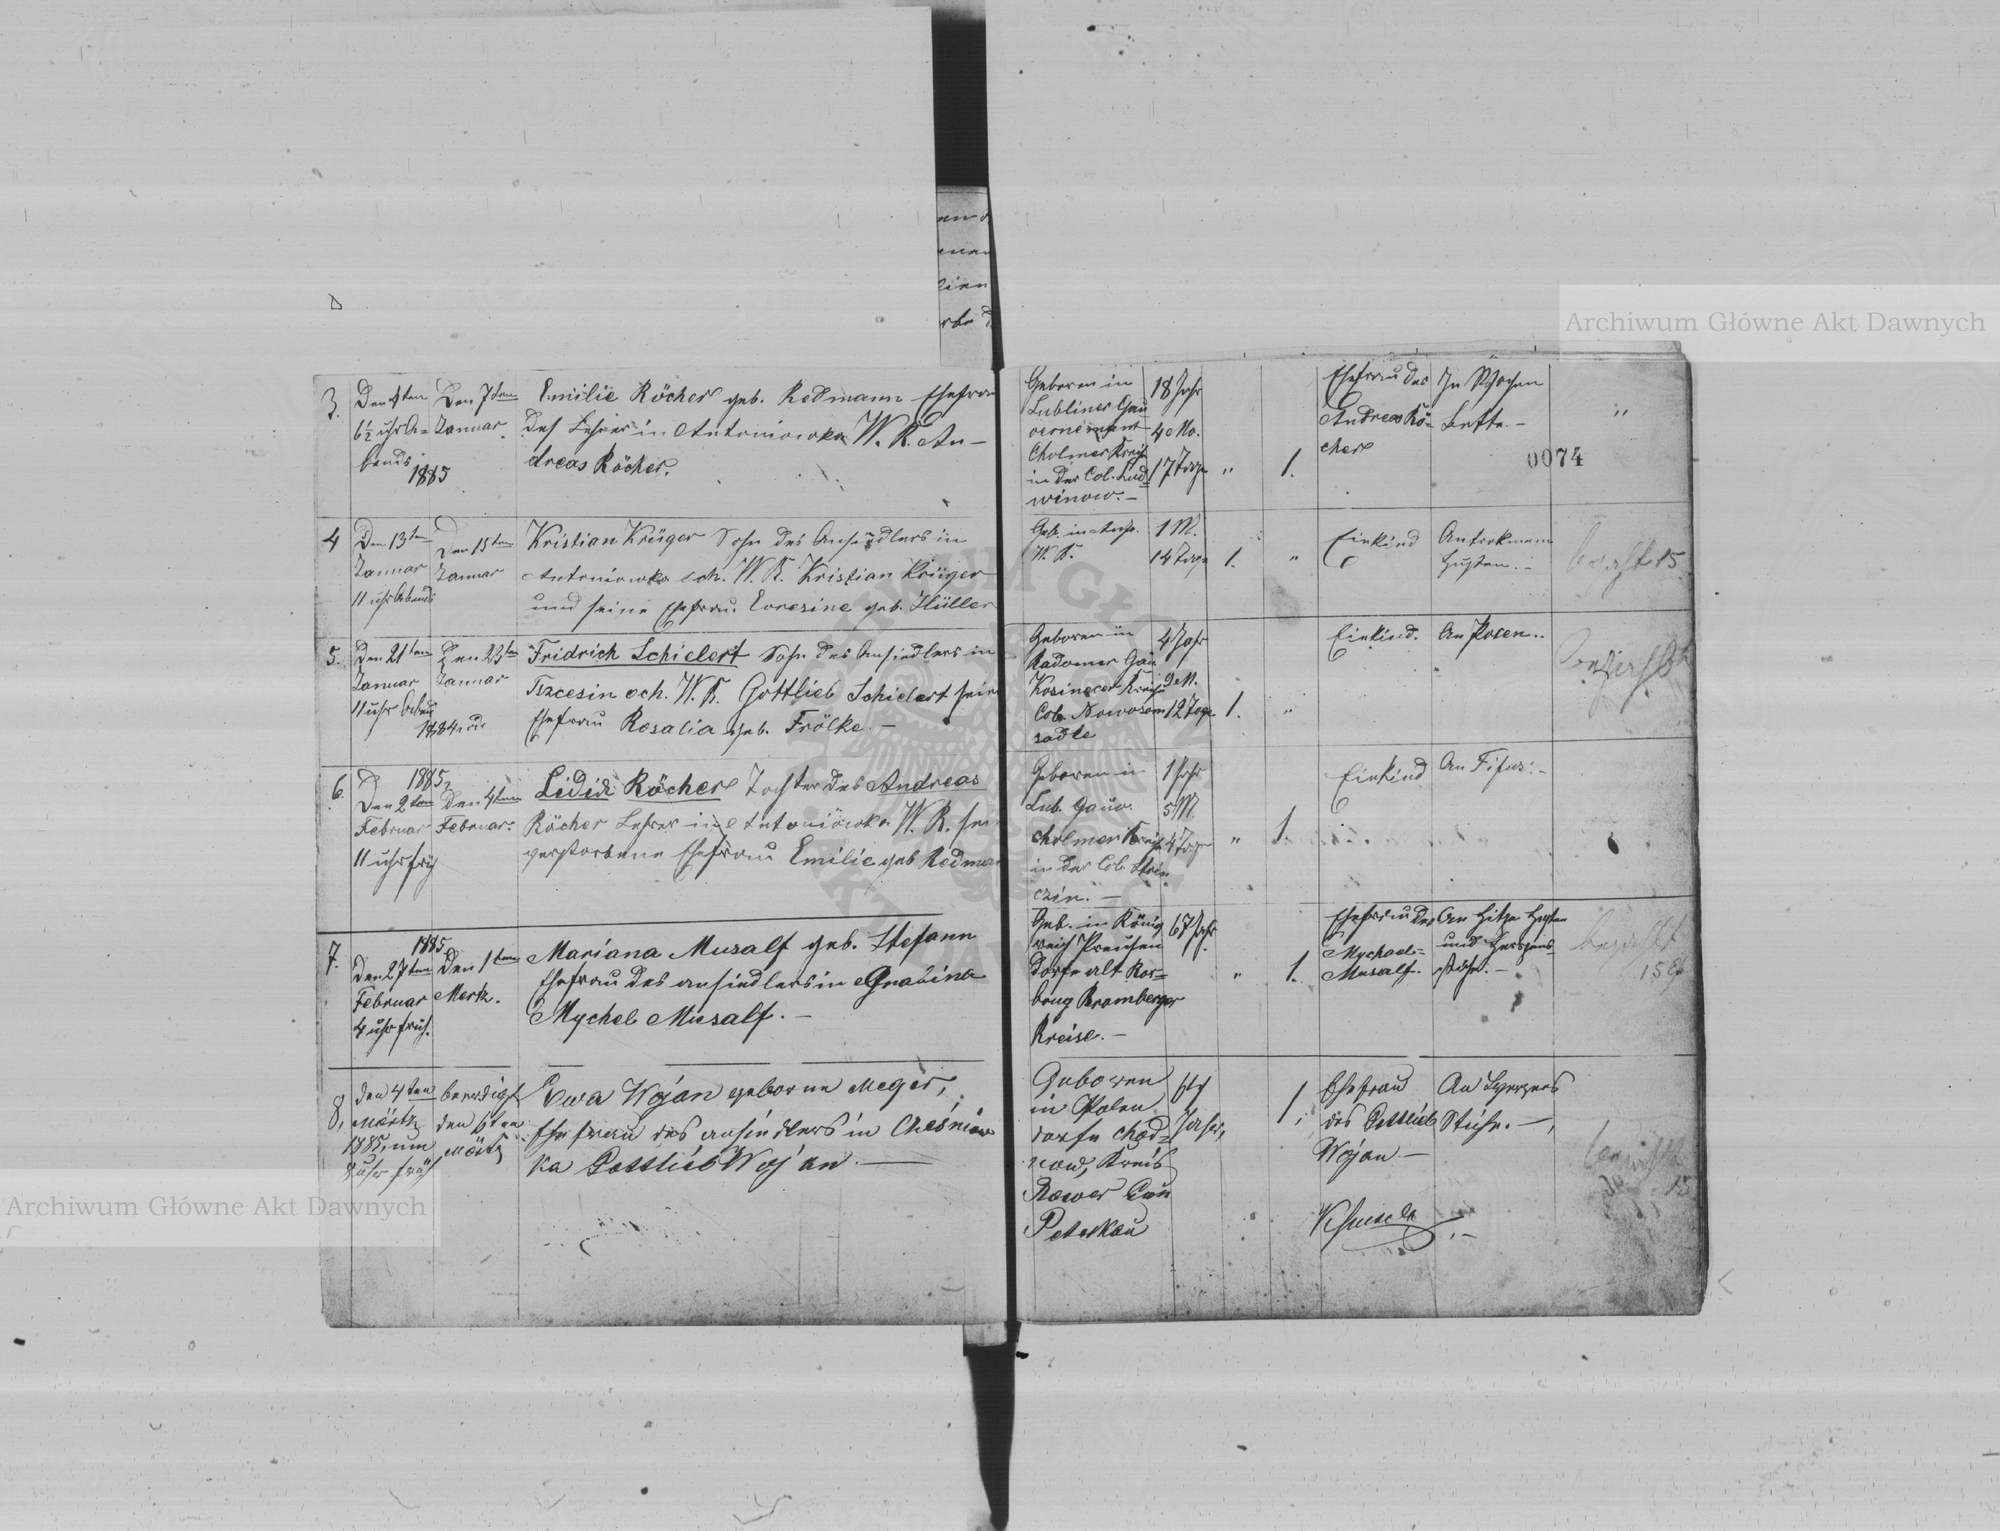 Archiwum Główne Akt Dawnych
0074
3.
Den 4ten
6½ uhr A=
bends
1885
Den 7ten
Januar.
Emilie Röcher geb. Redmann Ehefrau
des Lehrer in Antoniowka W. K. An-
dreas Röcher.
Geboren in
Lubliner Gou
vernement
Cholmer Kreise
in der Col. Lud
winow.-
18 Jahr
4 Mo.
17 Tage
"
1.
Ehefrau des
Andreas Rö-
cher
In Wochen
Bette.-
"
4
Den 13ten
Januar
11 uhr Abends
Den 15ten
Januar
Kristian Krüger Sohn des Ansiedlers in
Antoniowka och. W. K. Kristian Krüger
und seine Ehefrau geb. Hüller
Geb. in Anto.
W. K.
1 M.
14 Tage
1.
"
Ein Kind
An
Husten.-
bezahlt 15
5.
Den 21ten
Januar
11 uhr Abend
1884
Den 23ten
Januar
Fridrich Schielert Sohn des Ansiedlers in
Tszcesin och. W. K. Gottlieb Schielert sein
Ehefrau Rosalia geb. Frölke.-
Geboren in
Radomer Gau
Kosinecer Kreise
Col. Nowosom
sadle
4 Jahr
9 M.
12 Tage
1.
"
Ein Kind.
An Pocen..
6.
1885
Den 2ten
Februar
11 uhr früh
Den 4ten
Februar.
Lidide Röcher Tochter des Andreas
Röcher Lehrer in Antoniowka W. K. sei
verstorbene Ehefrau Emilie geb Redman
Geboren in
Lub. Gauv.
Cholmer Kreise
in der Col.
czin.-
1 Jahr
5 M
4 Tage
"
1.
Ein Kind
An
7.
1885
Den 27ten
Februar
4 uhr früh.
Den 1ten
Mertz.
Mariana Musalf geb. Stefann
Ehefrau des ansiedlers in Grabina
Mychel Musalf.-
Geb. in König
reich Preusen
Dorfe alt
Bromberger
Kreise.-
67 Jahr.
"
1.
Ehefrau des
Mychael=
Musalf.
An Hitze Husten
und Herzens
bezahlt
15
8,
den 4ten
Märtz
1885, um
8 uhr früh
beerdigt
den 6ten
Märtz
Ewa Wojan geborne Meger,
Ehefrau des ansiedlers in Chesniow
ka Gottlieb Wojan.—
Geboren
in Polen
dorfe Chod=
now, Kreis
Rawer Gau
Peterkau
Jahr,
1,
Ehefrau
des Gottlieb
Wojan.-
An Herzens
Stiche.-,
15
Archiwum Główne Akt Dawnych